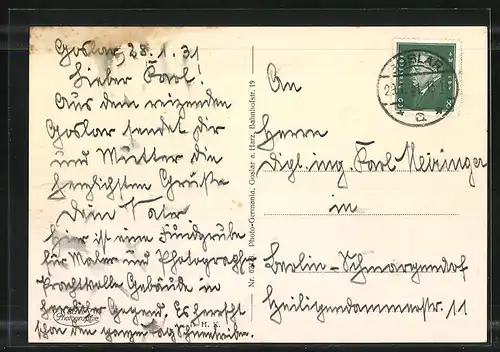 Goslar, 28.1.31
Lieber Karl!
Aus dem reizenden
Goslar sendet dir
und Mutter die
herzlichsten Grüße
Dein Vater
Hier ist eine Fundgrube
für Maler und Photographen
Prachtvolle Gebäude in
herrlicher Gegend. Es herrscht
schon den ganzen Tag
Photo-Germania, Goslar a. Harz, Bahnhofstr. 19
GOSLAR
An
Herrn
Dipl. ing. Karl Meiringer
in
Berlin-Schmargendorf
Heiligendammerstr. 11